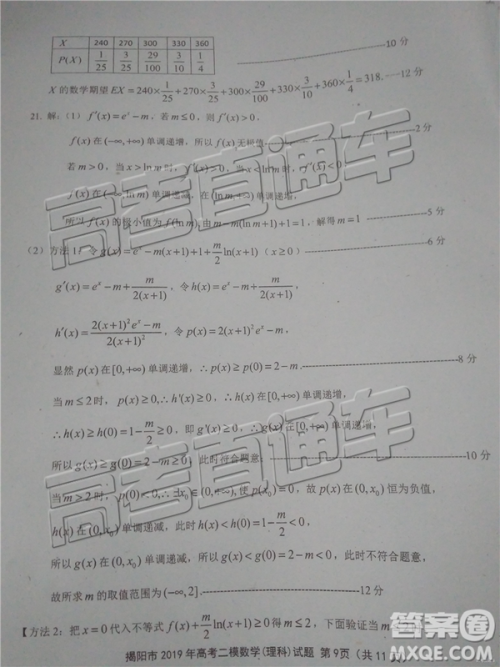 X 240 270 300 330 360
P(X) 1/25 3/25 29/100 3/10 1/4
10 分
X 的数学期望 EX=240×1/25+270×3/25+300×29/100+330×3/10+360×1/4=318. 12 分
21. 解:(1) f'(x)=e^x-m,若 m≤0,则 f'(x)>0,
f(x) 在 (-∞,+∞) 单调递增,所以 f(x) 无极值 2 分
若 m>0,当 x>ln m 时,f'(x)>0,当 x<ln m 时,f'(x)<0
f(x) 在 (-∞,ln m) 单调递减,在 (ln m,+∞) 单调递增,
所以 f(x) 的极小值为 f(ln m),由 m-m(ln m+1)+1=1,解得 m=1 5 分
(2) 方法 1:令 g(x)=e^x-m(x+1)+1+m/2 ln(x+1) (x≥0) 6 分
g'(x)=e^x-m+m/2(x+1),令 h(x)=e^x-m+m/2(x+1),
h'(x)=2(x+1)²e^x-m/2(x+1)²,令 p(x)=2(x+1)²e^x-m,
显然 p(x) 在 [0,+∞) 单调递增,∴p(x)≥p(0)=2-m. 8 分
当 m≤2 时,p(x)≥0,∴h'(x)≥0,∴h(x) 在 [0,+∞) 单调递增,
∴h(x)≥h(0)=1-m/2≥0,即 g'(x)≥0,∴g(x) 在 [0,+∞) 单调递增,
所以 g(x)≥g(0)=2-m≥0,此时符合题意; 10 分
当 m>2 时,p(0)<0,∴∃x₀∈(0,+∞),使 p(x₀)=0,故 p(x) 在 (0,x₀) 恒为负值,
h(x) 在 (0,x₀) 单调递减,此时 h(x)<h(0)=1-m/2<0,
所以 g(x) 在 (0,x₀) 单调递减,所以 g(x)<g(0)=2-m<0,此时不符合题意,
故所求 m 的取值范围为 (-∞,2]. 12 分
【方法 2:把 x=0 代入不等式 f(x)+m/2 ln(x+1)≥0 得 m≤2,下面验证当 m
揭阳市 2019 年高考二模数学(理科)试题 第 9页(共 11
高考直通车
高考直通车